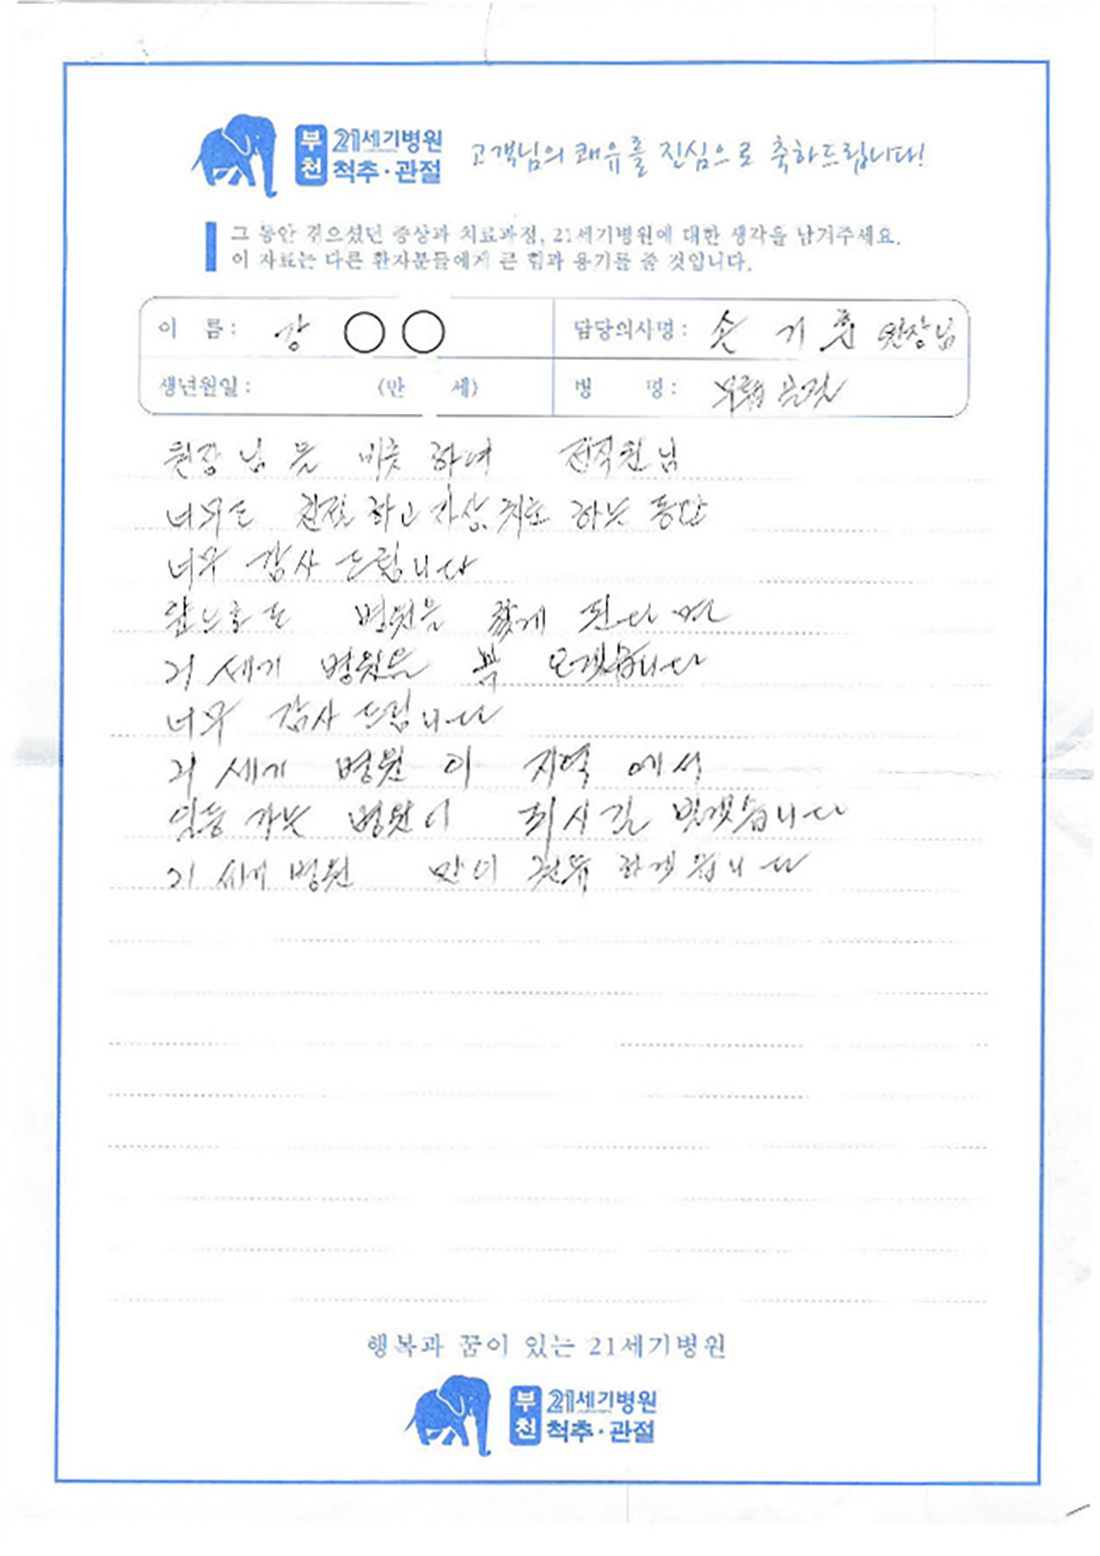 부천 21세기병원 척추·관절
고객님의 쾌유를 진심으로 축하드립니다!
그 동안 겪으셨던 증상과 치료과정, 21세기병원에 대한 생각을 남겨주세요.
이 자료는 다른 환자분들에게 큰 힘과 용기를 줄 것입니다.
이 름 : 강 ○○ 담당의사명 : 손 기 훈 원장님
생년월일 : (만 세) 병 명 : 무릎 관절
원장님 을 비롯 하여 전직원님
너무도 친절 하고 자상, 치료 하는 동안
너무 감사 드립니다
앞으로도 병원을 찾게 된다면
21 세기 병원을 꼭 오겠습니다
너무 감사 드립니다
21 세기 병원 이 지역 에서
일등 가는 병원이 되시길 빌겠습니다
21 세기 병원 많이 권유 하겠습니다
행복과 꿈이 있는 21세기병원
부천 21세기병원 척추·관절